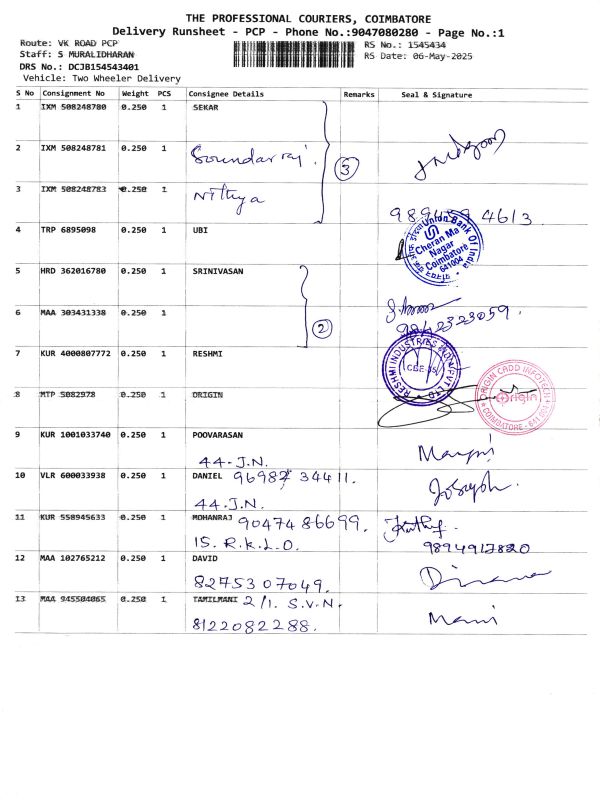 THE PROFESSIONAL COURIERS, COIMBATORE
Delivery Runsheet - PCP - Phone No.:9047080280 - Page No.:1
Route: VK ROAD PCP
RS No.: 1545434
Staff: S MURALIDHARAN
RS Date: 06-May-2025
DRS No.: DCJB154543401
Vehicle: Two Wheeler Delivery
S No Consignment No Weight PCS Consignee Details Remarks Seal & Signature
1 IXM 508248780 0.250 1 SEKAR
2 IXM 508248781 0.250 1 Soundarraj.
3
3 IXM 508248783 0.250 1 Nithya
4613
4 TRP 6895098 0.250 1 UBI
Union Bank Of India
Cheran Ma
Nagar
Coimbatore
641004
5 HRD 362016780 0.250 1 SRINIVASAN
6 MAA 303431338 0.250 1
2
9842323059.
7 KUR 4000807772 0.250 1 RESHMI
RESHMI INDUSTRIES PVT LTD
CBE-35
8 MTP 5082978 0.250 1 ORIGIN
ORIGIN CADD INFOTECH
Origin
COIMBATORE
9 KUR 1001033740 0.250 1 POOVARASAN
44-J.N.
10 VLR 600033938 0.250 1 DANIEL 96987 34411.
Joseph.
44-J.N.
11 KUR 558945633 0.250 1 MOHANRAJ 9047486699.
15. R.K.L.O.
9894917820
12 MAA 102765212 0.250 1 DAVID
8275307049.
13 MAA 945504065 0.250 1 TAMILMANI 2/1. S.V.N.
Mani
8122082288.